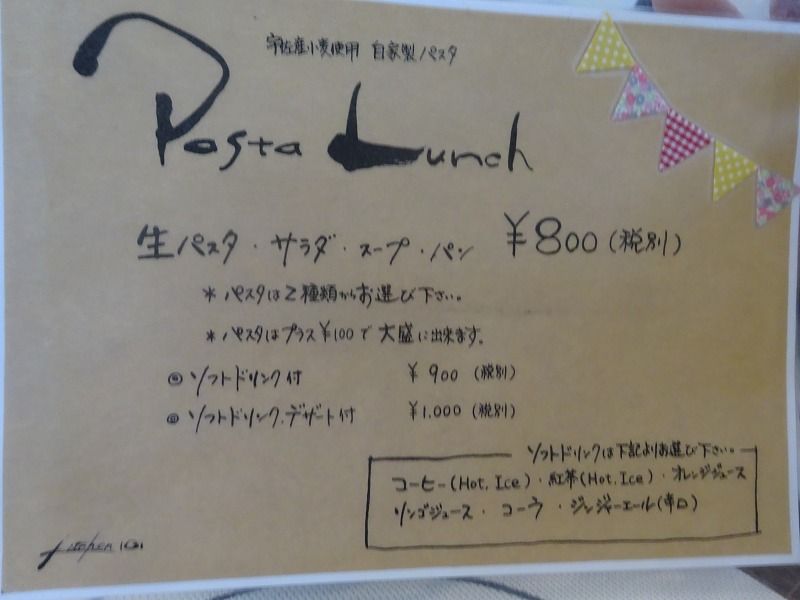 宇佐産小麦使用 自家製パスタ
Pasta Lunch
生パスタ・サラダ・スープ・パン ¥800(税別)
* パスタは2種類からお選び下さい。
* パスタはプラス¥100で大盛に出来ます。
◎ ソフトドリンク付 ¥900(税別)
◎ ソフトドリンク、デザート付 ¥1,000(税別)
ソフトドリンクは下記よりお選び下さい。
コーヒー(Hot, Ice)・紅茶(Hot, Ice)・オレンジジュース
リンゴジュース・コーラ・ジンジャーエール(辛口)
kitchen 101